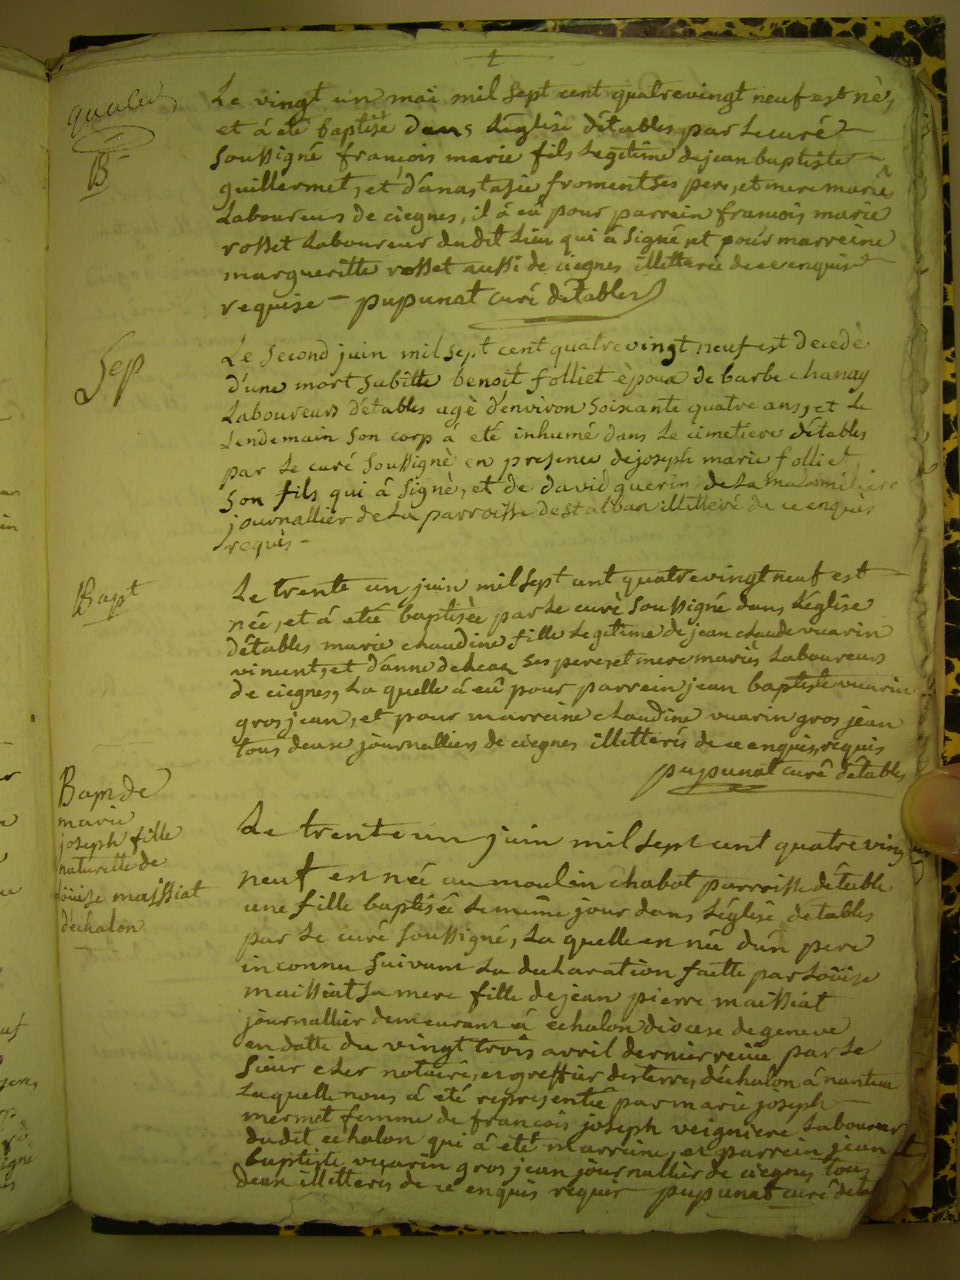 B
Le vingt un mai mil sept cent quatrevingt neuf est nè,
et á été baptisé dans Léglise détables par Le curé
soussigné francois marie fils Legitime de jean baptiste
guillermet, et d'anastasie froment ses pere, et mere mariés
Laboureurs de ciegnes, il á eû pour parrein francois marie
rosset Laboureur dudit Lieu qui á signé et pour marreine
margueritte rosset aussi de ciegnes illitterée de ce enquise
requise - pupunat curé détables
Sep
Le second juin mil sept cent quatrevingt neuf est decedè
d'une mort subitte benoit folliet èpoux de barbe chanay
Laboureurs détables agè d'environ soixante quatre ans, et Le
Lendemain son corp á eté inhumé dans Le cimetiere détables
par Le curé soussigné en presence de joseph marie folliet
son fils qui á signé, et de david guerin de La
journallier de La parroisse de st alban illitteré de ce enquis
requis -
Bapt
Le trente un juin mil sept cent quatrevingt neuf est
née, et á eté baptisèe par Le curè soussigné dans Léglise
détables marie claudine fille Legitime de jean claude vuarin
vincent, et d'anne deleaz ses pere, et mere mariés Laboureurs
de ciegnes, La quelle á eû pour parrein jean baptiste vuarin
gros jean, et pour marreine claudine vuarin gros jean
tous deux journalliers de ciegnes illitterés de ce enquis, requis
pupunat curé détables
Bap. de
marie
joseph fille
naturelle de
Loüise maissiat
déchalon
Le trente un juin mil sept cent quatre vingt
neuf est née au moulin chabot parroisse détable
une fille baptisée Le même jour dans Léglise détables
par Le curé soussigné, La quelle est née d'un pere
inconnu suivant La declaration faitte par Loüise
maissiat sa mere fille de jean pierre maissiat
journallier demeurant á echalon diocese de geneve
en datte du vingt trois avril dernier reçüe par Le
sieur notaire, et greffier des terres déchalon á nantua
Laquelle nous á été representée par marie joseph
mermet femme de francois joseph veigniere Laboureur
dudit echalon qui á eté marreine, et parrein jean
baptiste vuarin gros jean journallier de ciegnes tous
deux illitteres de ce enquis requis pupunat curé detab